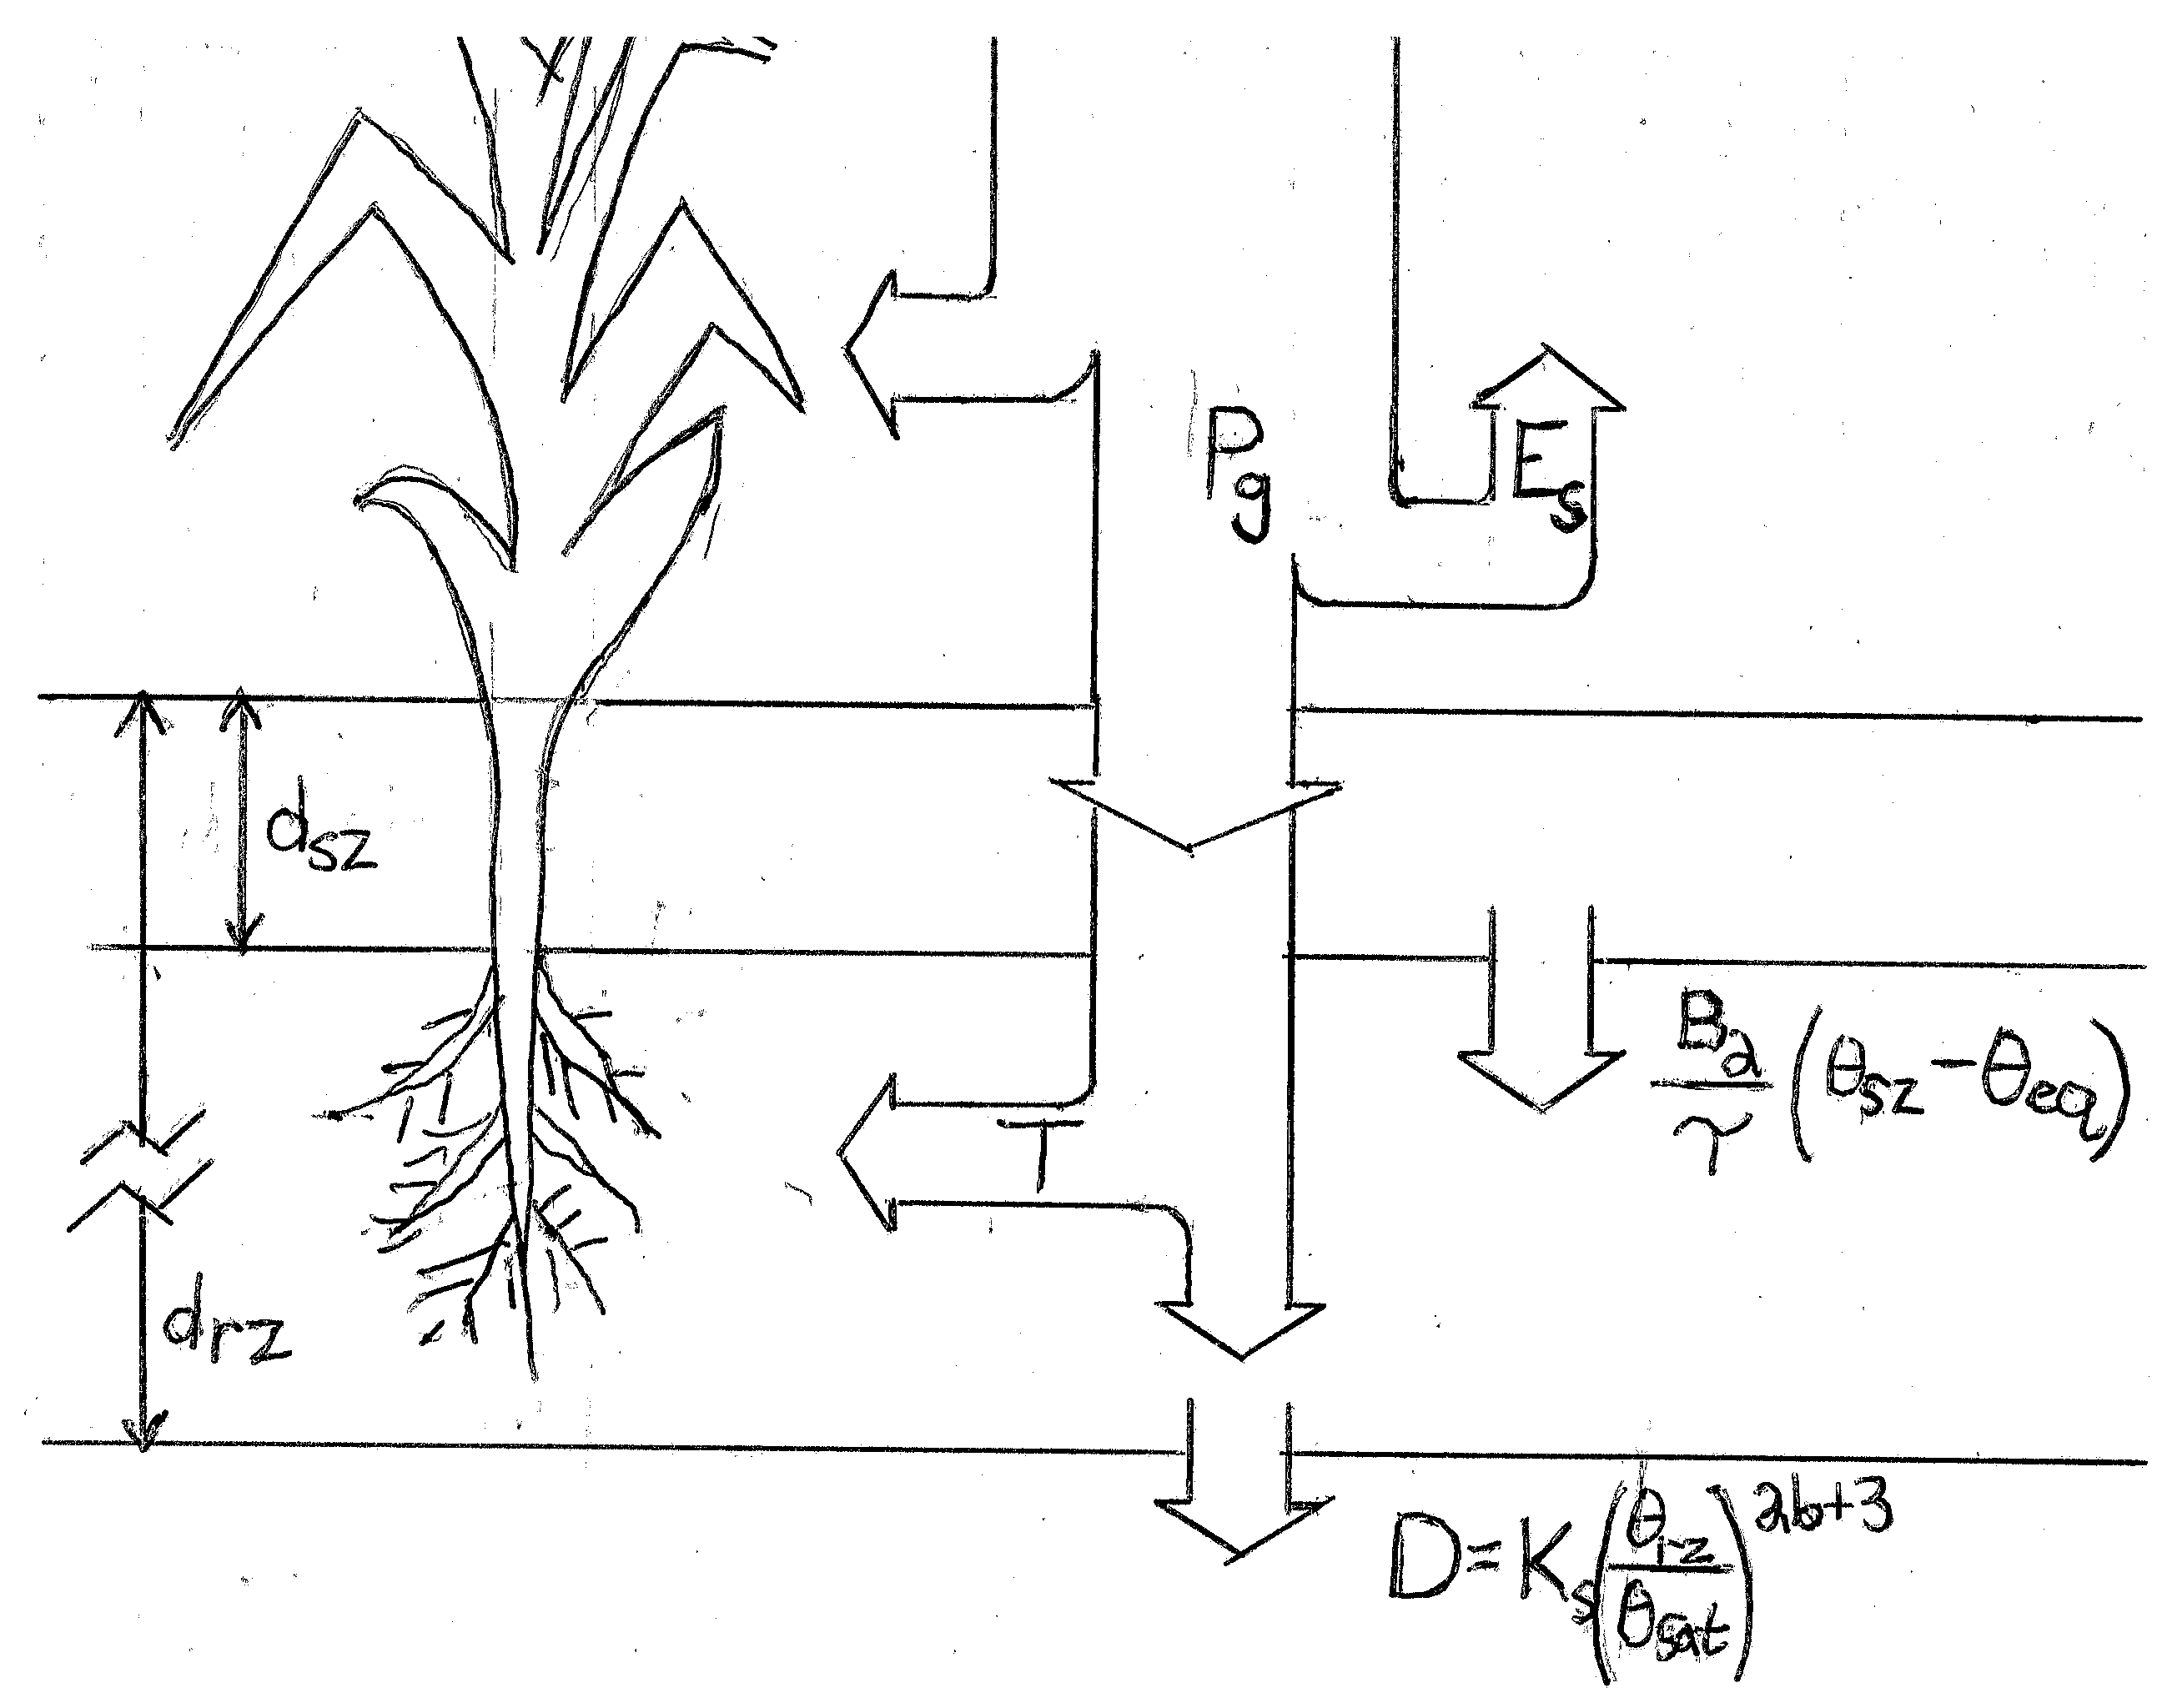 P_g
E_s
d_sz
B_2/τ (θ_sz - θ_eq)
T
d_rz
D = K_s (θ_rz/θ_sat)^2b+3